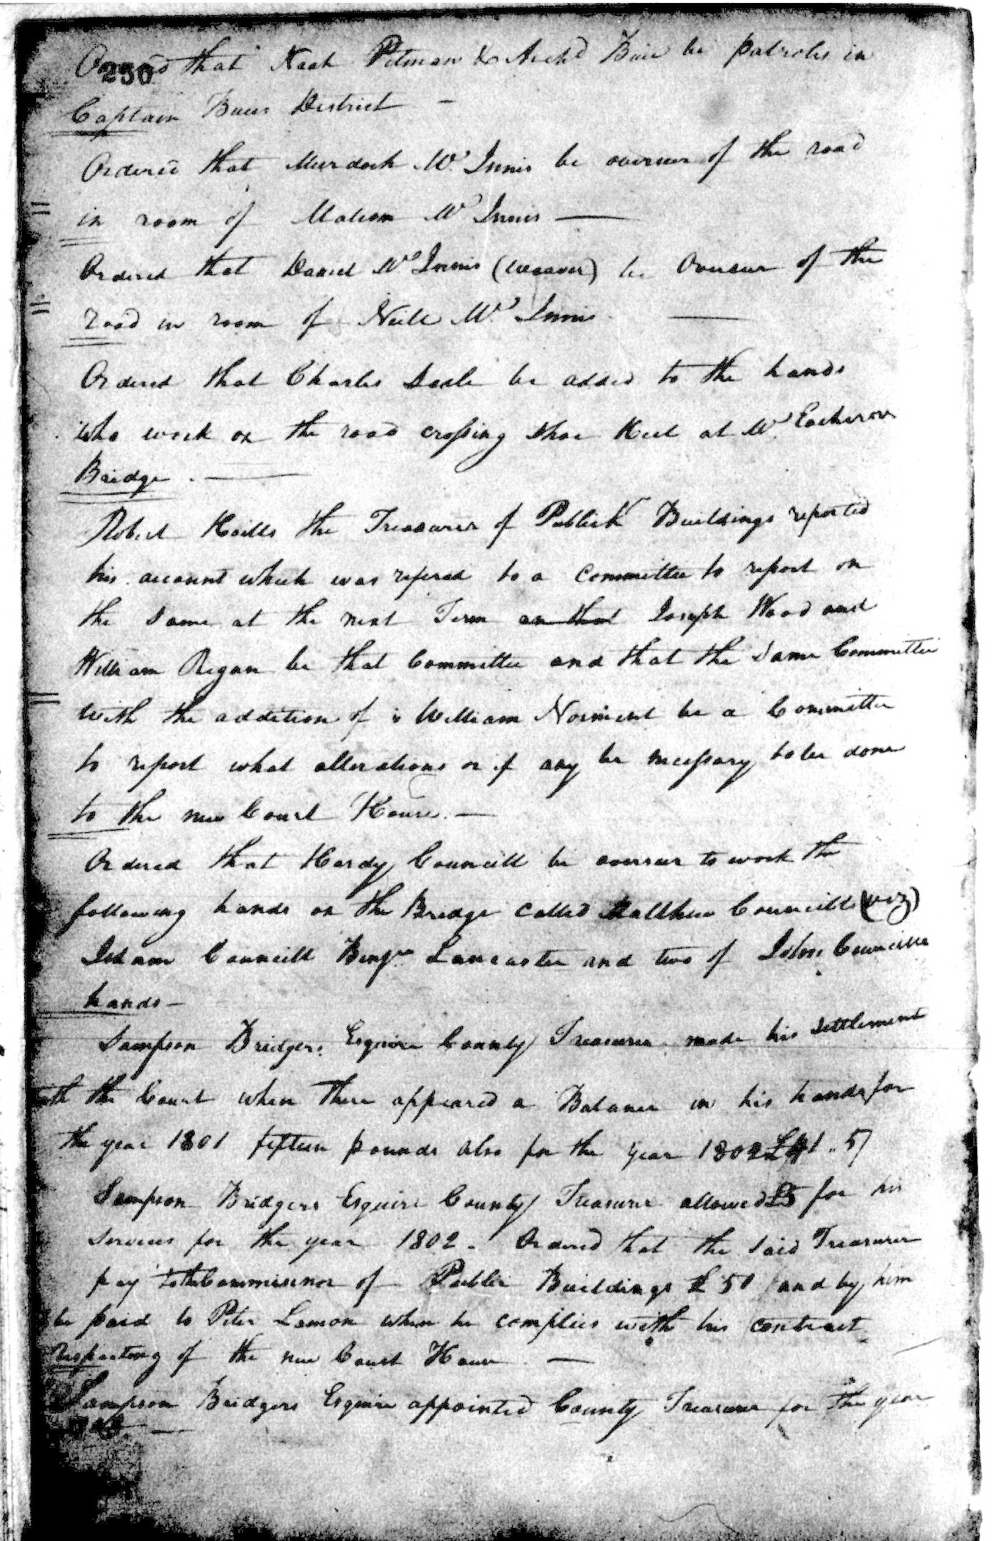 250
Ordered that Noah Pitman & Archd Buie be patroles in
Captain Buies District —
Ordered that Murdoch Mc Innis be overseer of the road
in room of Malcom Mc Innis —
Ordered that Daniel Mc Innis (weaver) be Overseer of the
road in room of Neill Mc Innis —
Ordered that Charles be added to the hands
who work on the road crossing Shoe Heel at Mc Eacherons
Bridge . —
Robert Hails the Treasurer of Publick Buildings reported
his account which was refered to a committee to report on
the same at the next Term an that Joseph Wood and
William Regan be that Committee and that the same Committee
with the addition of William Norment be a Committee
to report what alterations or if any be necessary to be done
to the new Court House. —
Ordered that Hardy Councill be overseer to work the
following hands on the Bridge called Matthew Councills (viz)
Isham Councill Benjn Lancaster and two of John Councills
hands —
Sampson Bridgers Esquire County Treasurer made his settlement
with the Court when there appeared a Balance in his hands for
the year 1801 fifteen pounds also for the year 1802 £41.5
Sampson Bridgers Esquire County Treasurer allowed £5 for his
services for the year 1802 - Ordered that the said Treasurer
pay to the Commissinor of Public Buildings £50 and by him
be paid to Peter Lamon when he complies with his contract
respecting of the new Court House —
Sampson Bridgers Esquire appointed County Treasurer for the year